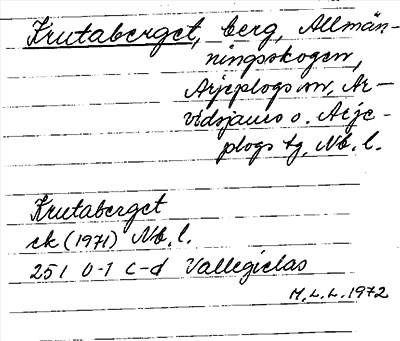 Krutaberget, berg, Allmän-
ningsskogen,
Arjeplogs sn, Ar-
vidsjaurs o. Arje-
plogs tg, Nb. l.
Krutaberget
ek (1971) Nb. l.
25 I 0-1 c-d Vallegielas
M. L. L. 1972